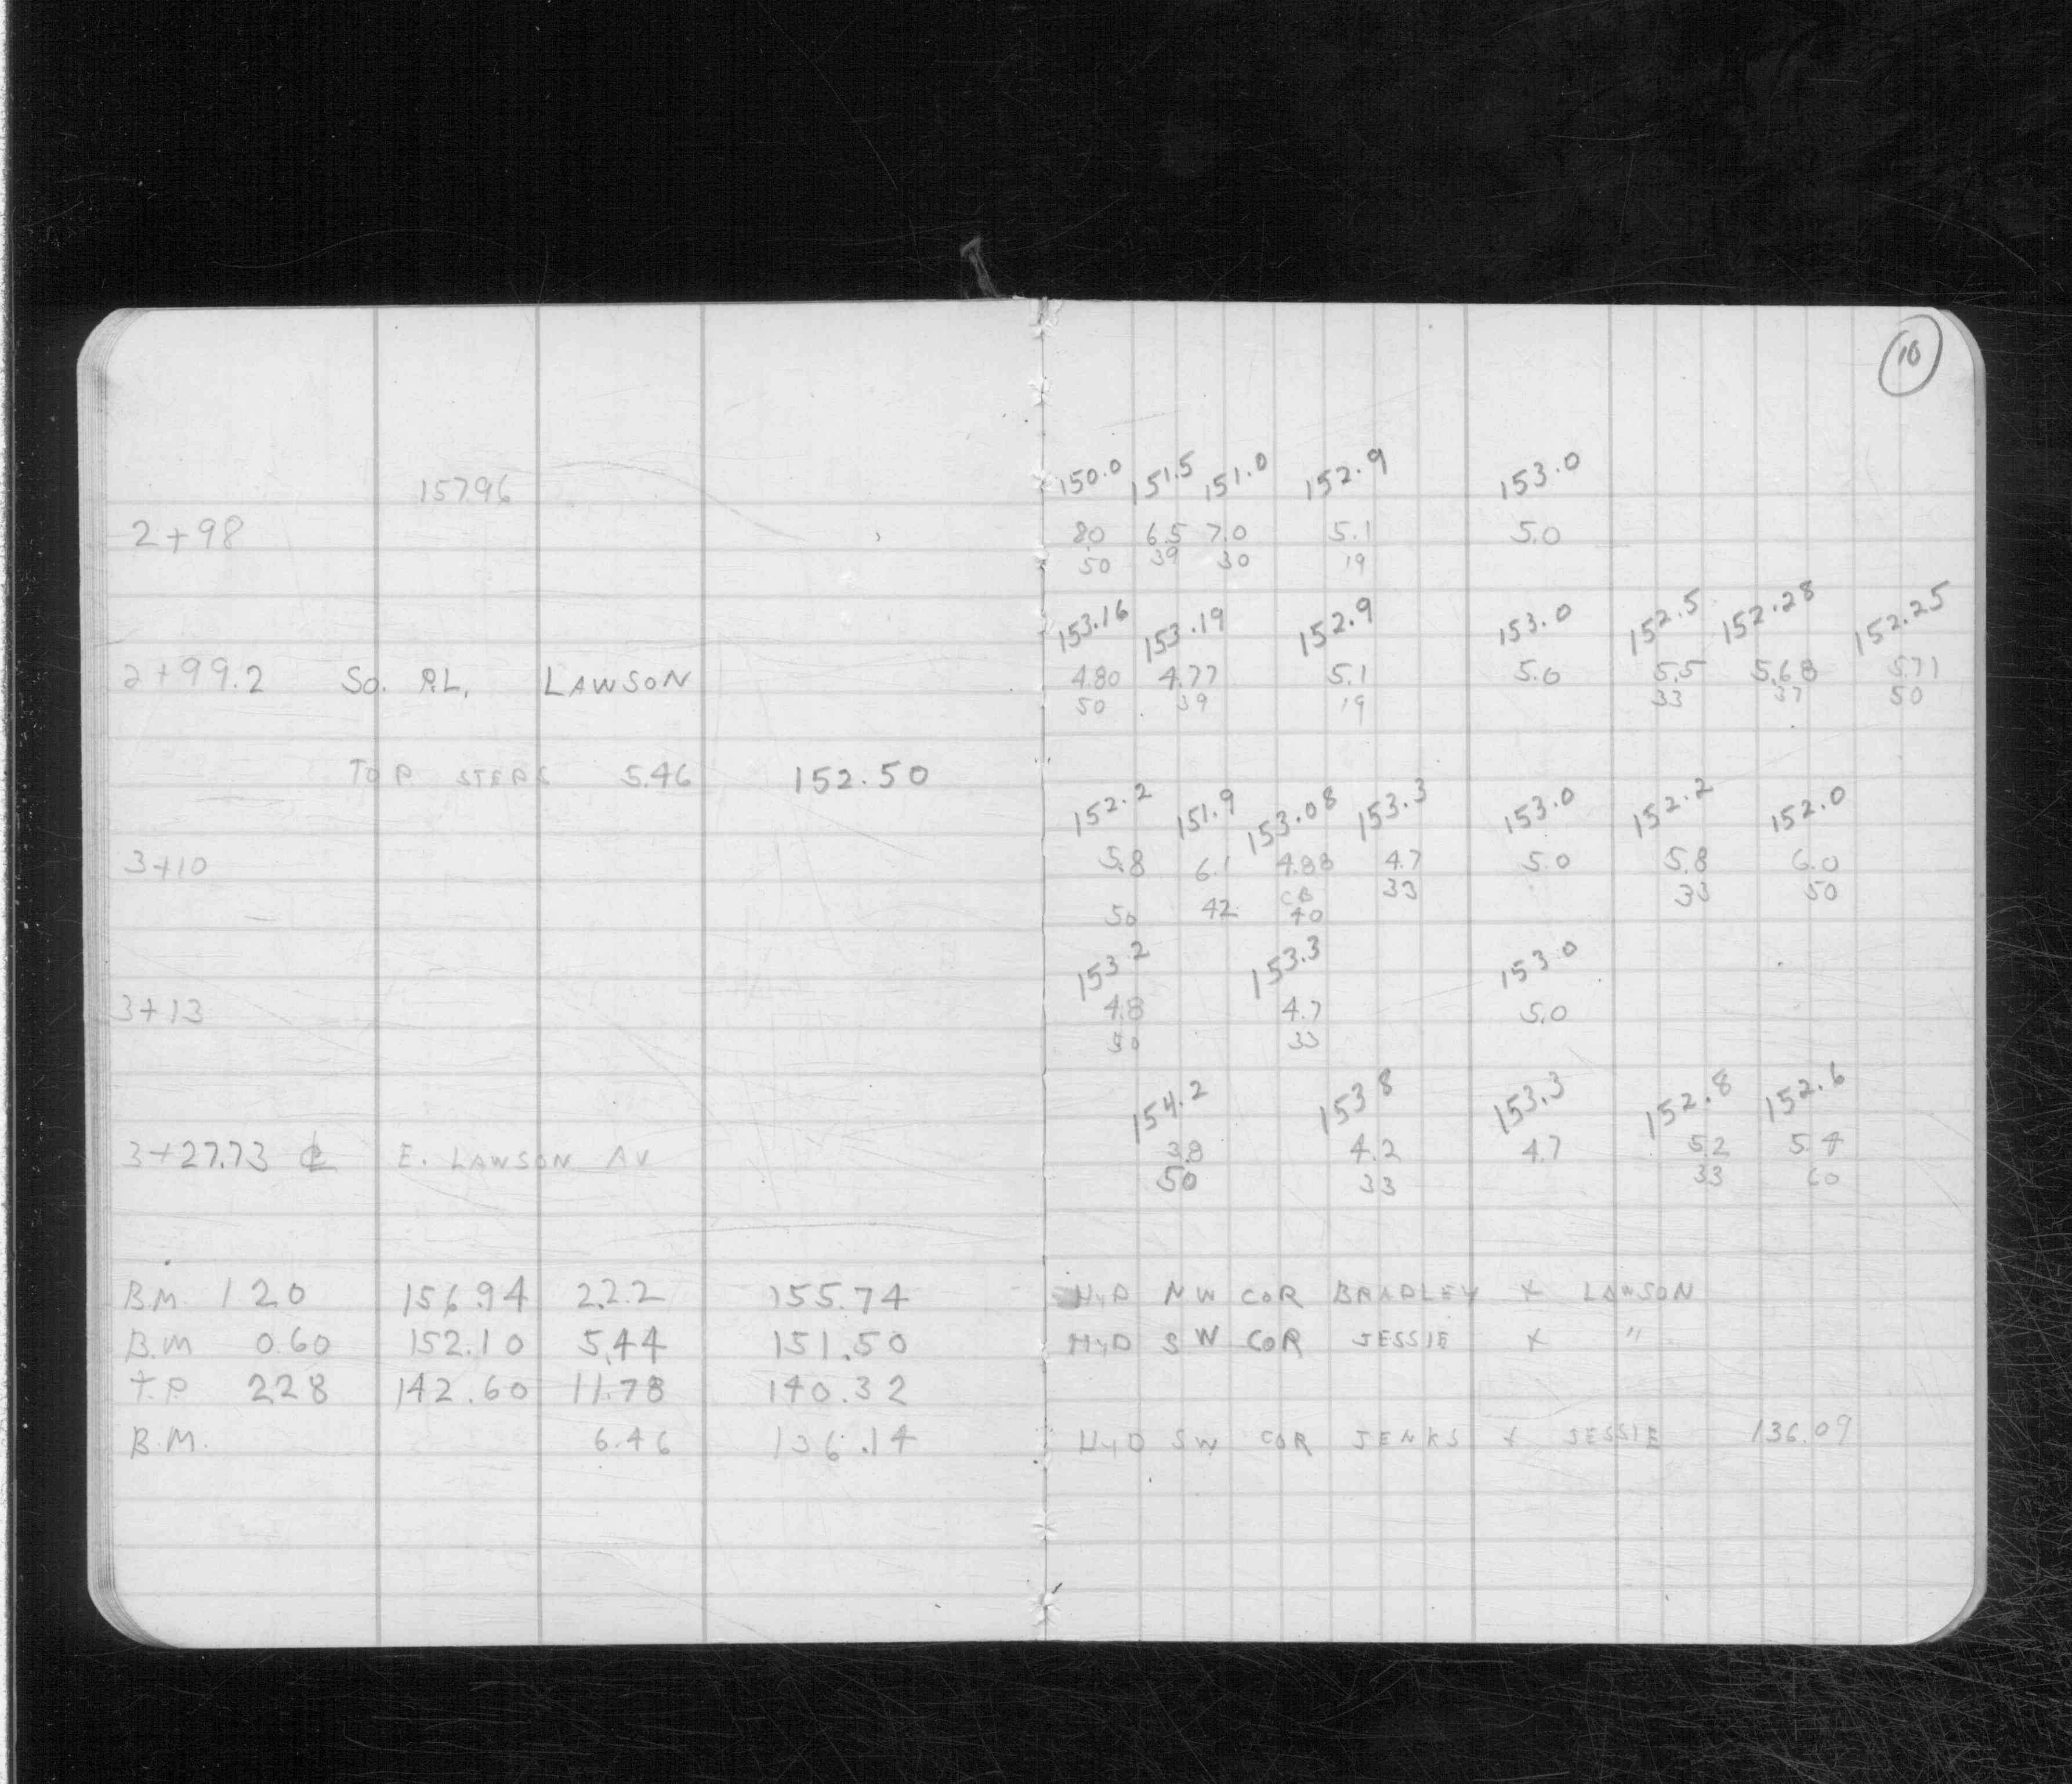 10
15796 150.0 151.5 151.0 152.9 153.0
2+98 8.0 6.5 7.0 5.1 5.0
50 39 30 19
153.16 153.19 152.9 153.0 152.5 152.28 152.25
2+99.2 SO. P.L. LAWSON 4.80 4.77 5.1 5.0 5.5 5.68 5.71
50 39 19 33 37 50
TOP STEPS 5.46 152.50
152.2 151.9 153.08 153.3 153.0 152.2 152.0
3+10 5.8 6.1 4.88 4.7 5.0 5.8 6.0
CB 33 33 50
50 42 40
153.2 153.3 153.0
3+13 4.8 4.7 5.0
50 33
154.2 153.8 153.3 152.8 152.6
3+27.73 ℄ E. LAWSON AV 3.8 4.2 4.7 5.2 5.4
50 33 33 60
B.M. 1 20 156.94 2.22 155.74 HYD NW COR BRADLEY + LAWSON
B.M 0.60 152.10 5.44 151.50 HYD SW COR JESSIE + "
T.P. 2.28 142.60 11.78 140.32
B.M. 6.46 136.14 HYD SW COR JENKS + JESSIE 136.09